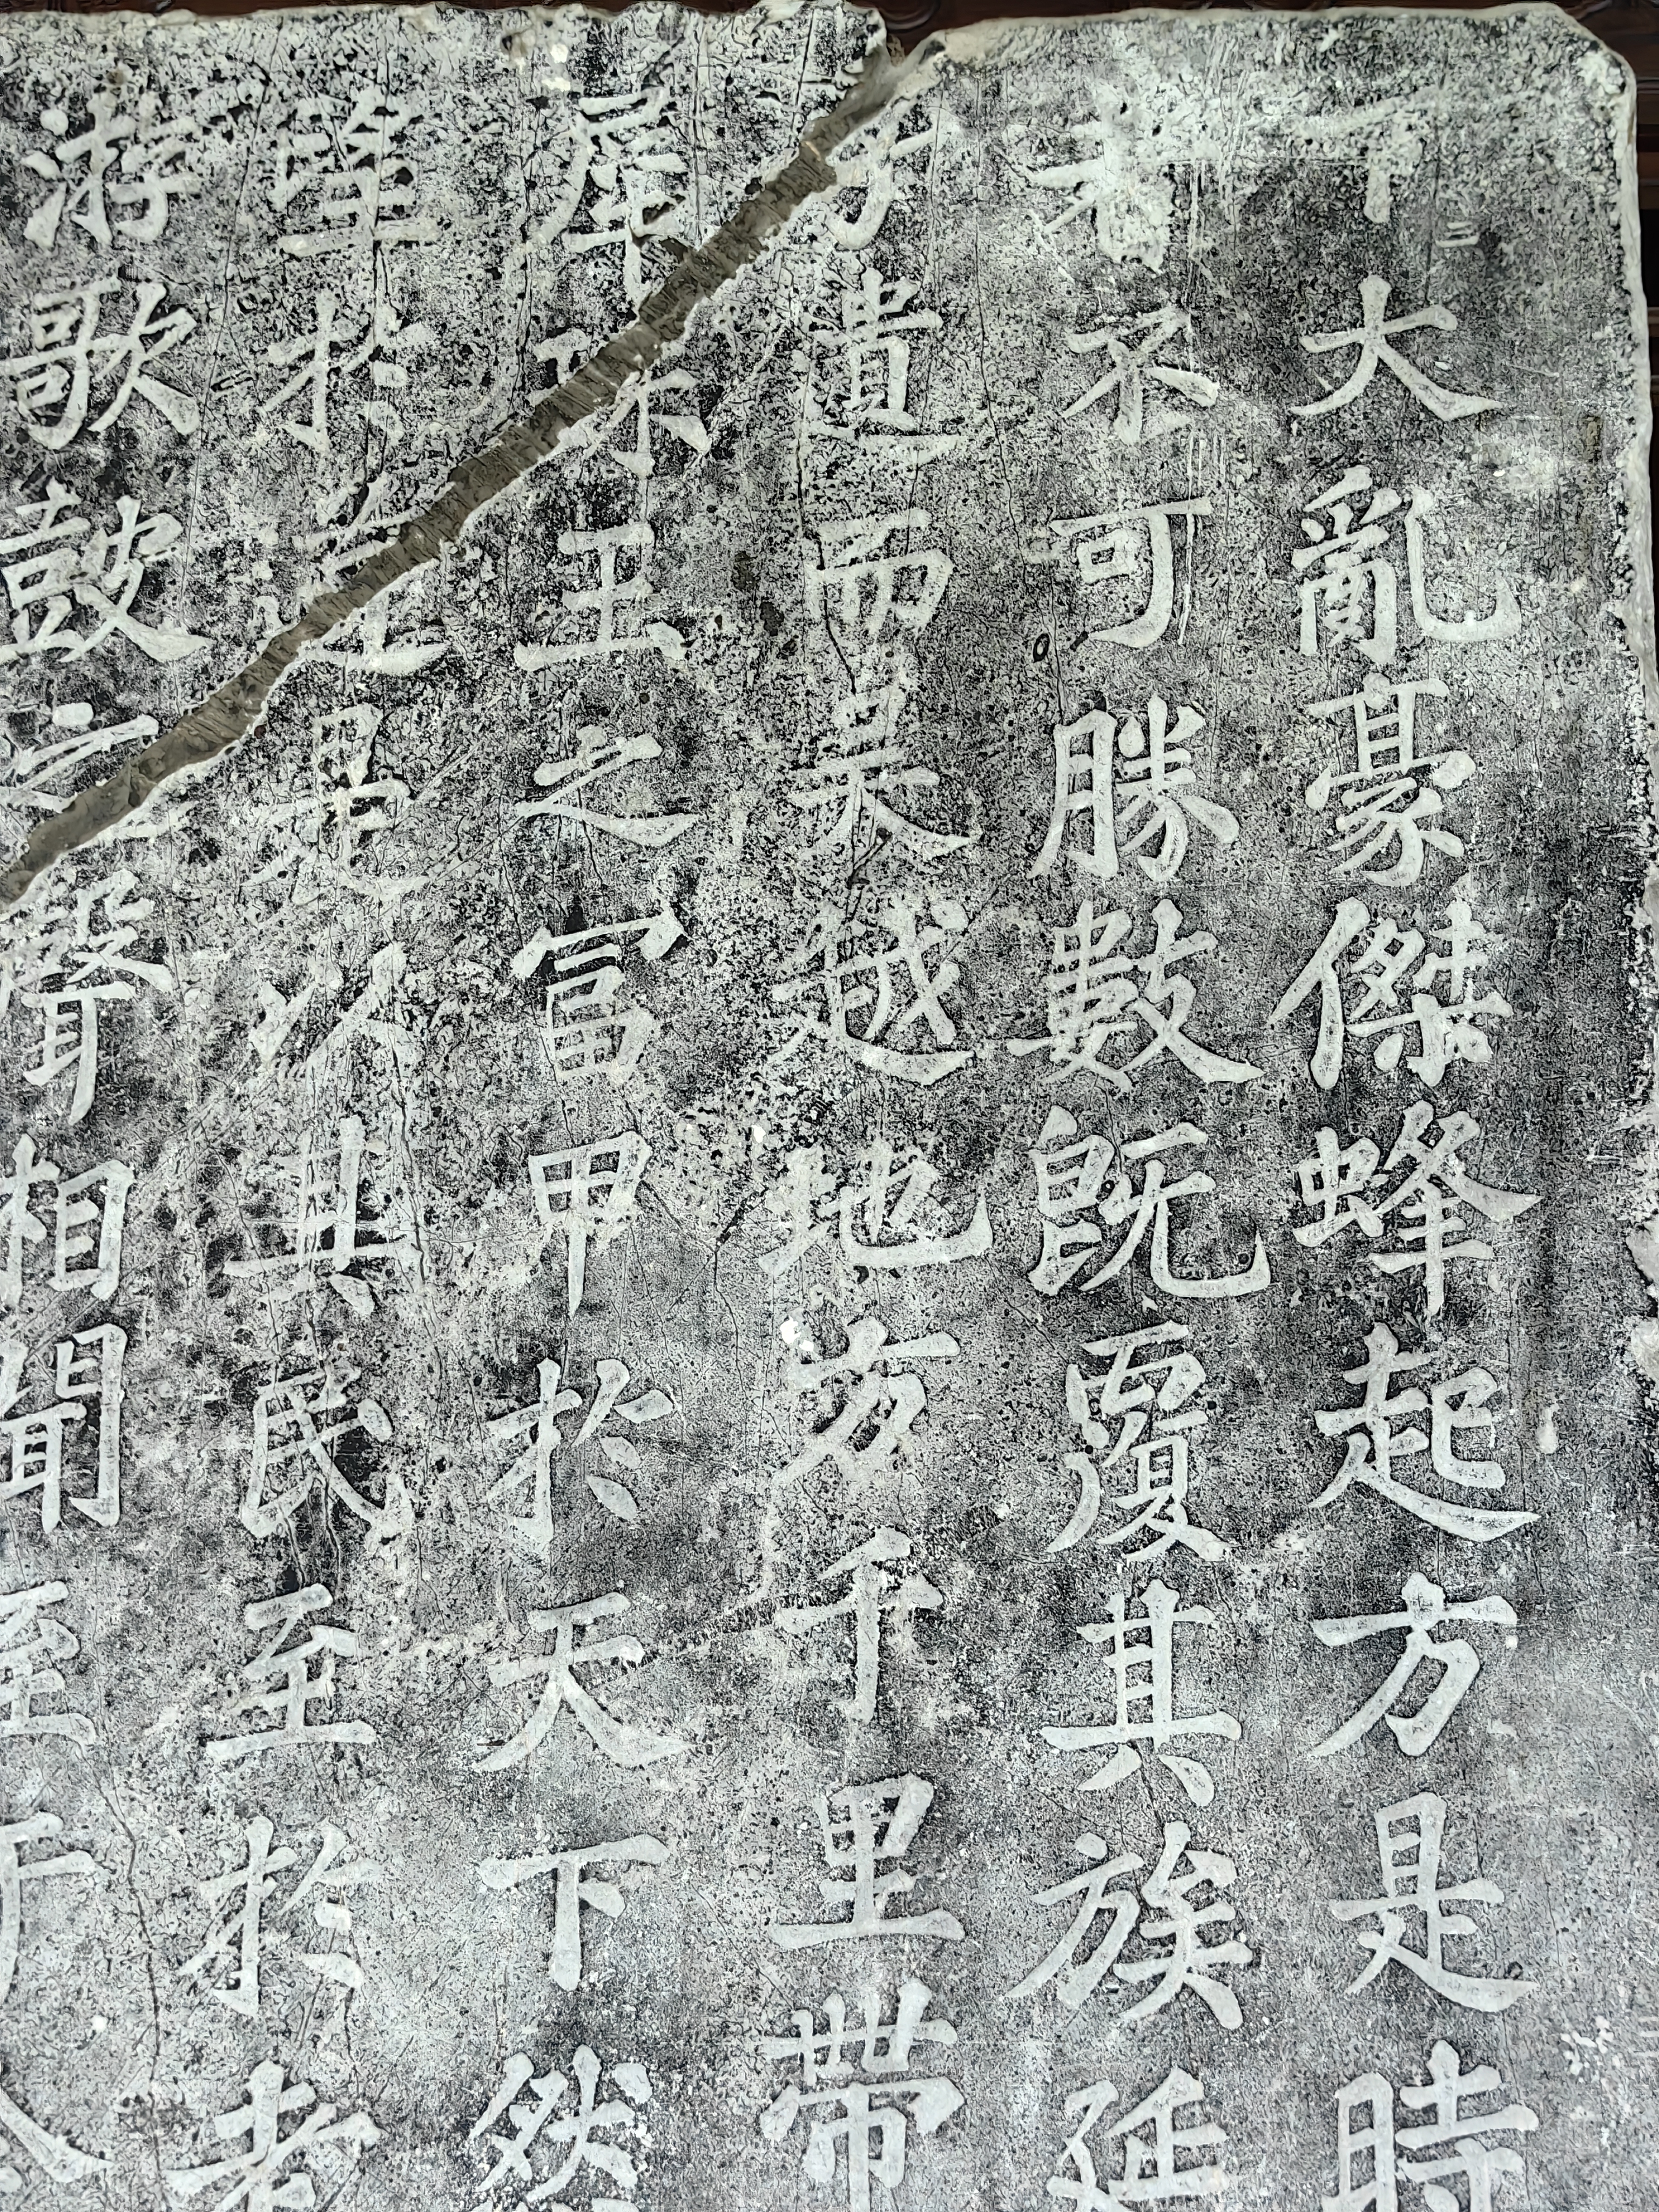 下大亂豪傑蜂起方是時
者不可勝數既覆其族延
孑遺而吳越地方千里帶
犀珠玉之富甲於天下然
望於道是以其民至於老
游歌鼓之聲相聞至于